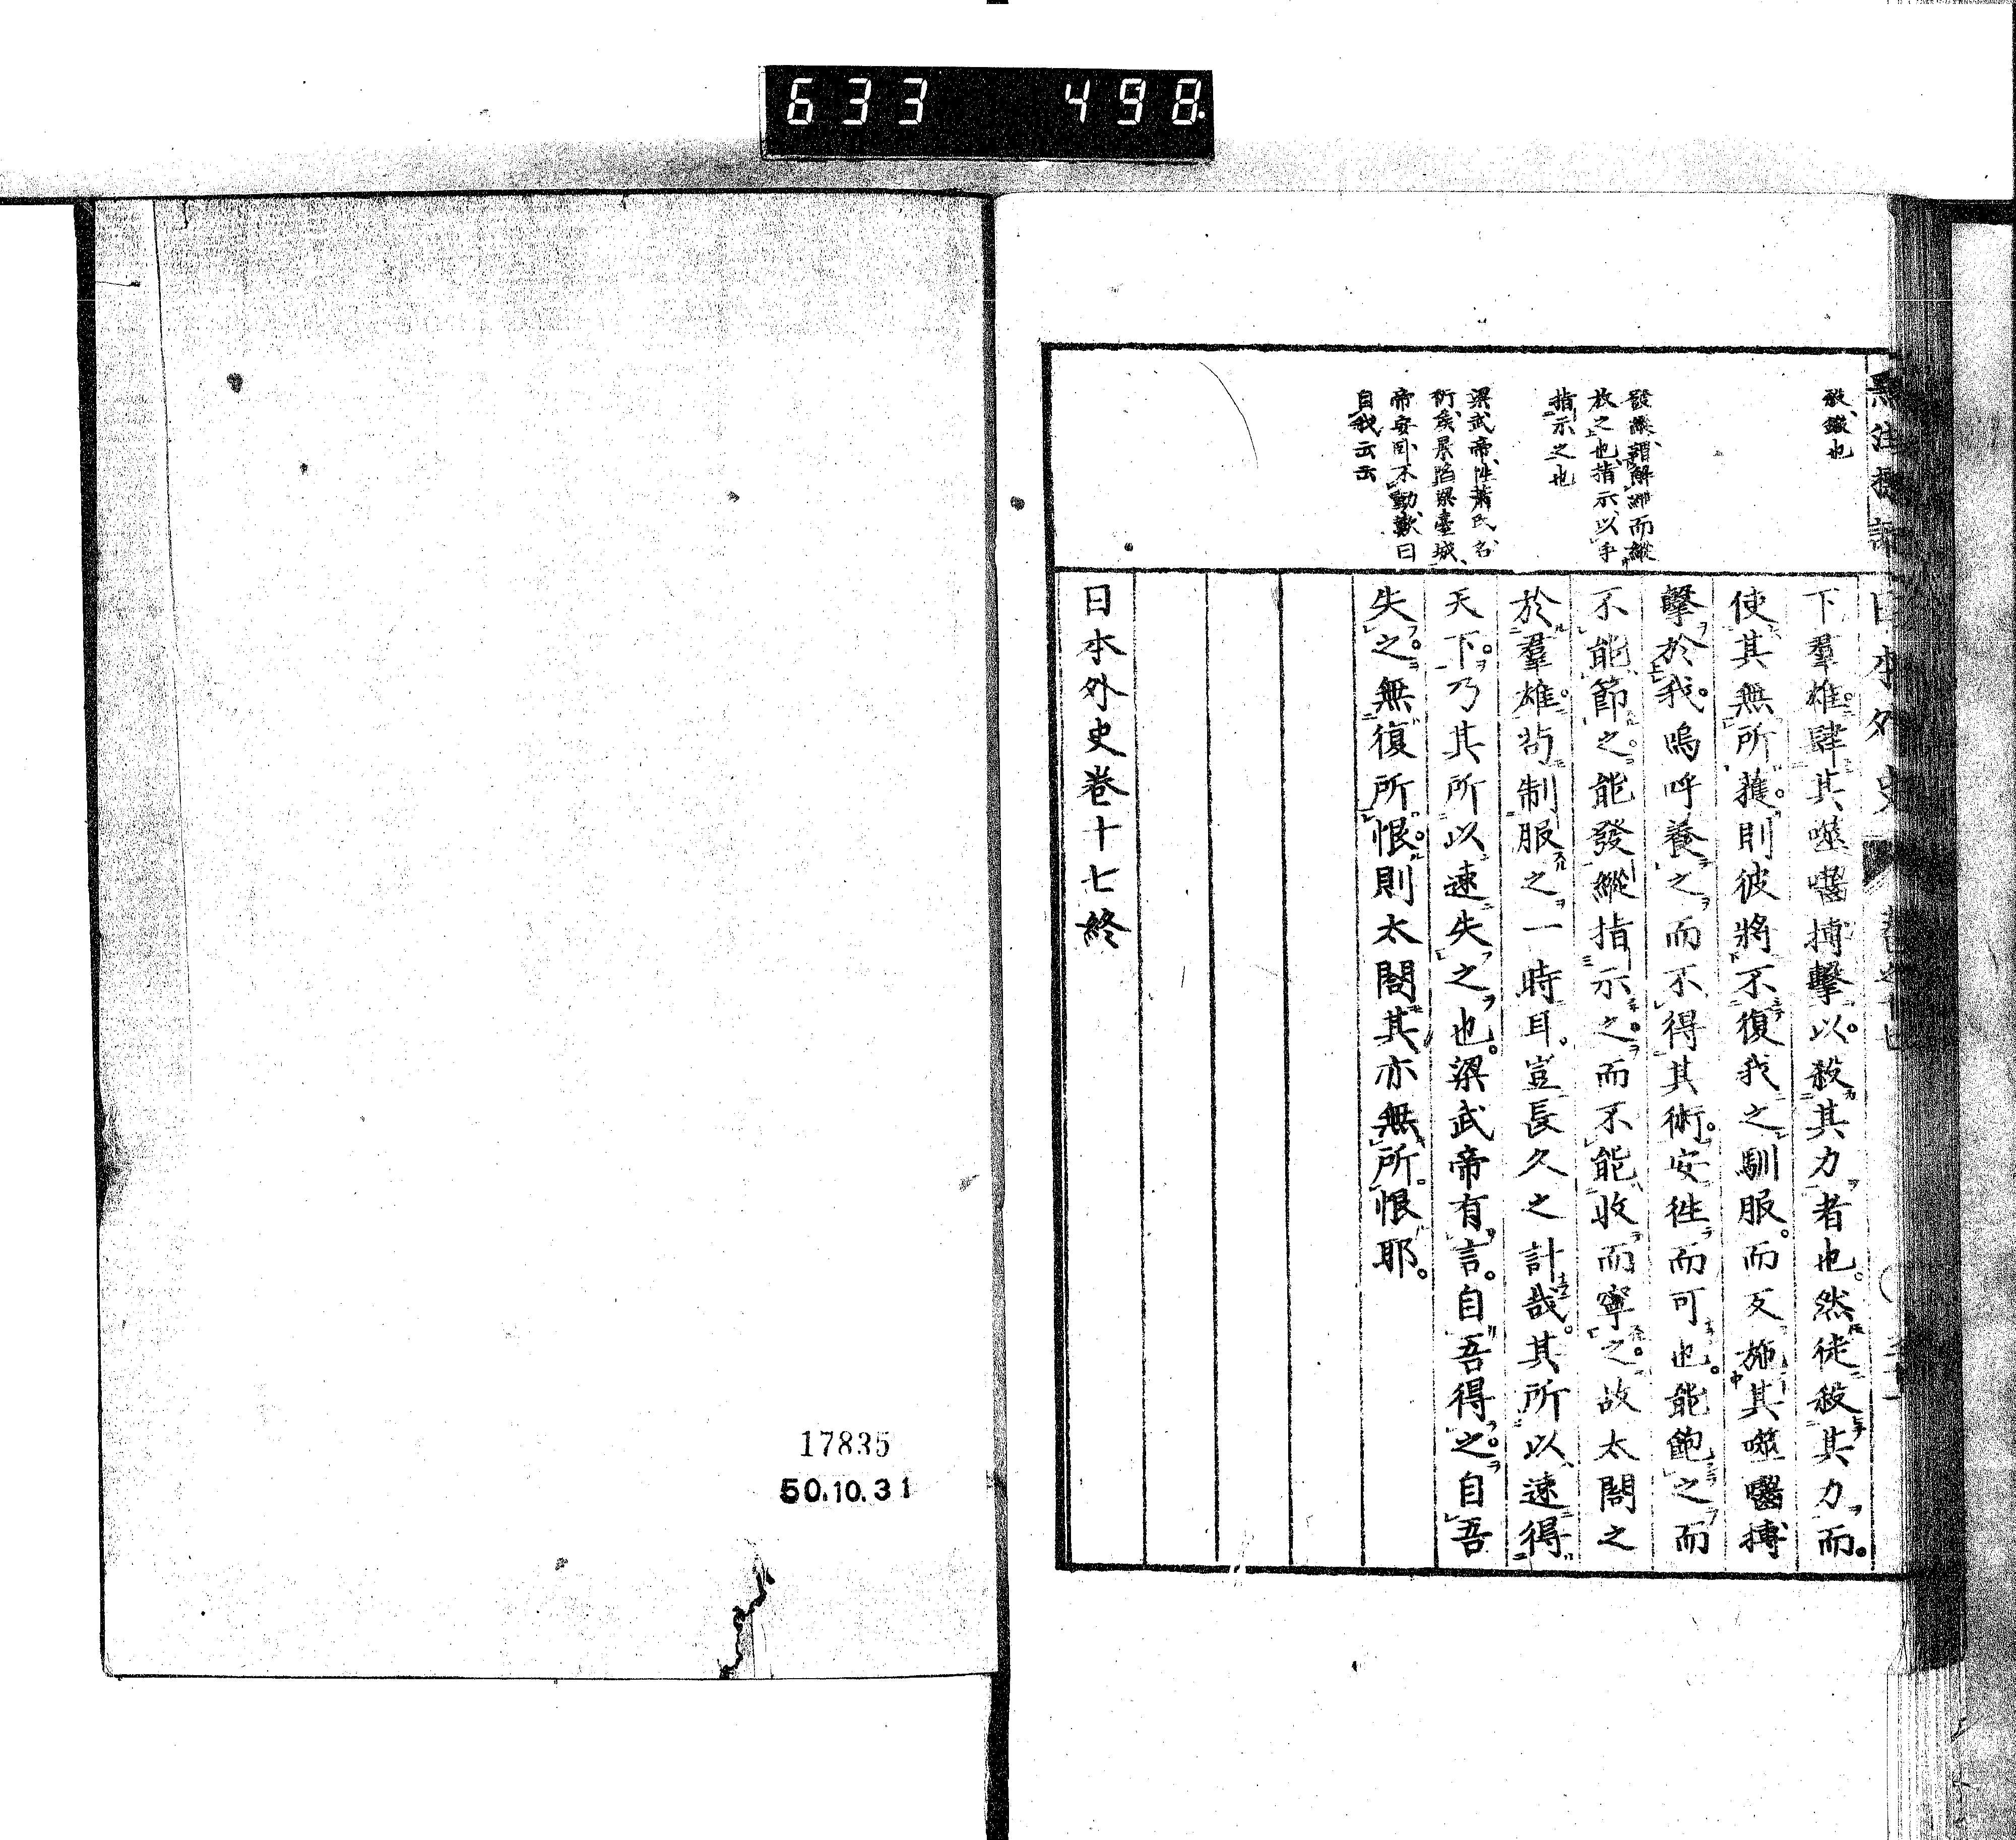 633 498
下羣雄肆其噬囓搏擊。以殺其力者也。然徒殺其力而。
使其無所獲。則彼將不復我之馴服。而反施其噬囓搏
擊於我。嗚呼養之而不得其術。安往而可也。能飽之而
不能節之。能發縱指示之。而不能收而寧之。故太閤之
於羣雄。苟制服之一時耳。豈長久之計哉。其所以速得
天下。乃其所以速失之也。梁武帝有言。自吾得之。自吾
失之。無復所恨。則太閤其亦無所恨耶。
日本外史卷十七終
殺、鐵也
發縱、謂解紲而縱
放之也、指示、以手
指示之也
梁武帝、性蕭氏、名
衍、矦景陷梁臺城、
帝安卧不動、歎曰
自我云云
17835
50.10.31